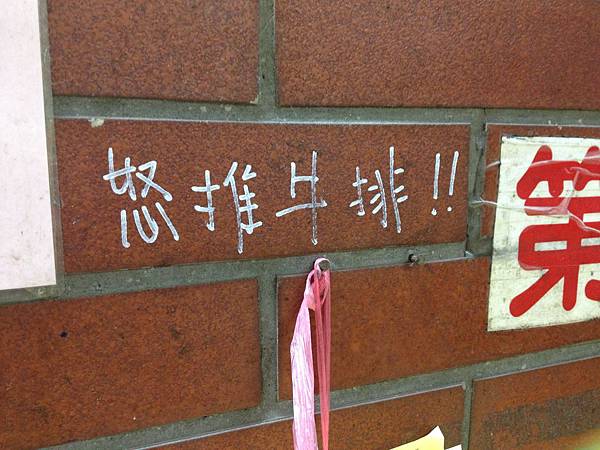 怒推牛排!!
第